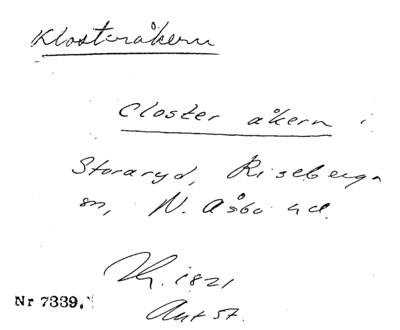 Klosteråkern
Closter åkern i
Storaryd, Riseberga
sn, N. Åsbo hd.
1821
Nr 7339.
Ant st.